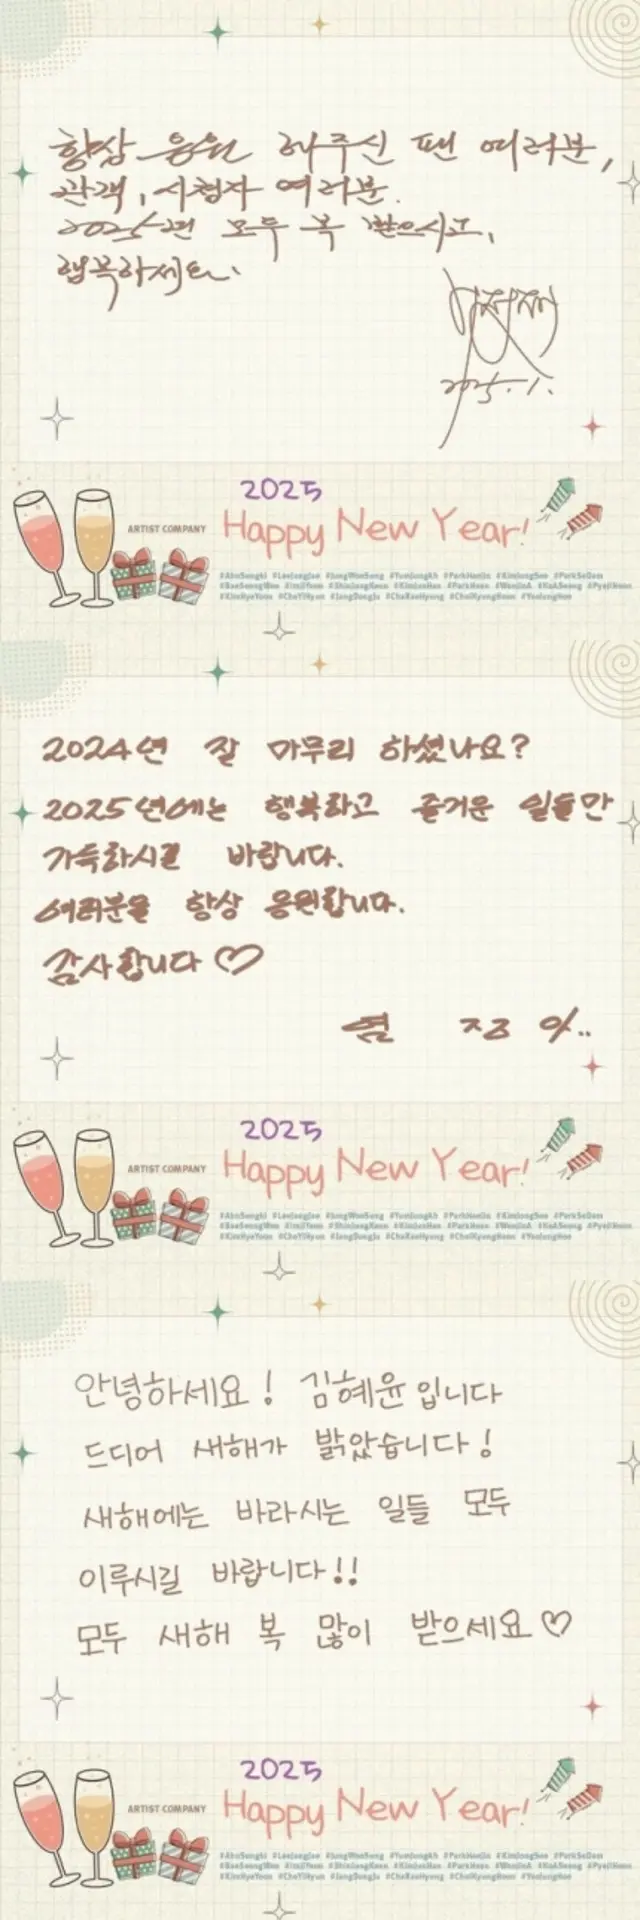 항상 응원 해주신 팬 여러분,
관객, 시청자 여러분.
2025년 모두 복 받으시고,
행복하세요.
2025. 1.
2025
Happy New Year!
ARTIST COMPANY
#AhnSungki #LeeJungJae #JungWooSung #YumJungAh #ParkHaeJin #KimJongSoo #ParkSoDam
#BaeSeongWoo #ShinJungKeun #KimJunHan #ParkHoon #WonJinA #KoASeong #PyoJiHoon
#KimHyeYoon #ChoYiHyun #JangDongJu #ChaRaeHyung #ChoiKyungHoon #YeoJungHoo
2024년 잘 마무리 하셨나요?
2025년에는 행복하고 즐거운 일들만
가득하시길 바랍니다.
여러분을 항상 응원합니다.
감사합니다 ♡
염 정 아..
2025
Happy New Year!
ARTIST COMPANY
#AhnSungki #LeeJungJae #JungWooSung #YumJungAh #ParkHaeJin #KimJongSoo #ParkSoDam
#BaeSeongWoo #ShinJungKeun #KimJunHan #ParkHoon #WonJinA #KoASeong #PyoJiHoon
#KimHyeYoon #ChoYiHyun #JangDongJu #ChaRaeHyung #ChoiKyungHoon #YeoJungHoo
안녕하세요! 김혜윤입니다
드디어 새해가 밝았습니다!
새해에는 바라시는 일들 모두
이루시길 바랍니다!!
모두 새해 복 많이 받으세요♡
2025
Happy New Year!
ARTIST COMPANY
#AhnSungki #LeeJungJae #JungWooSung #YumJungAh #ParkHaeJin #KimJongSoo #ParkSoDam
#BaeSeongWoo #ShinJungKeun #KimJunHan #ParkHoon #WonJinA #KoASeong #PyoJiHoon
#KimHyeYoon #ChoYiHyun #JangDongJu #ChaRaeHyung #ChoiKyungHoon #YeoJungHoo